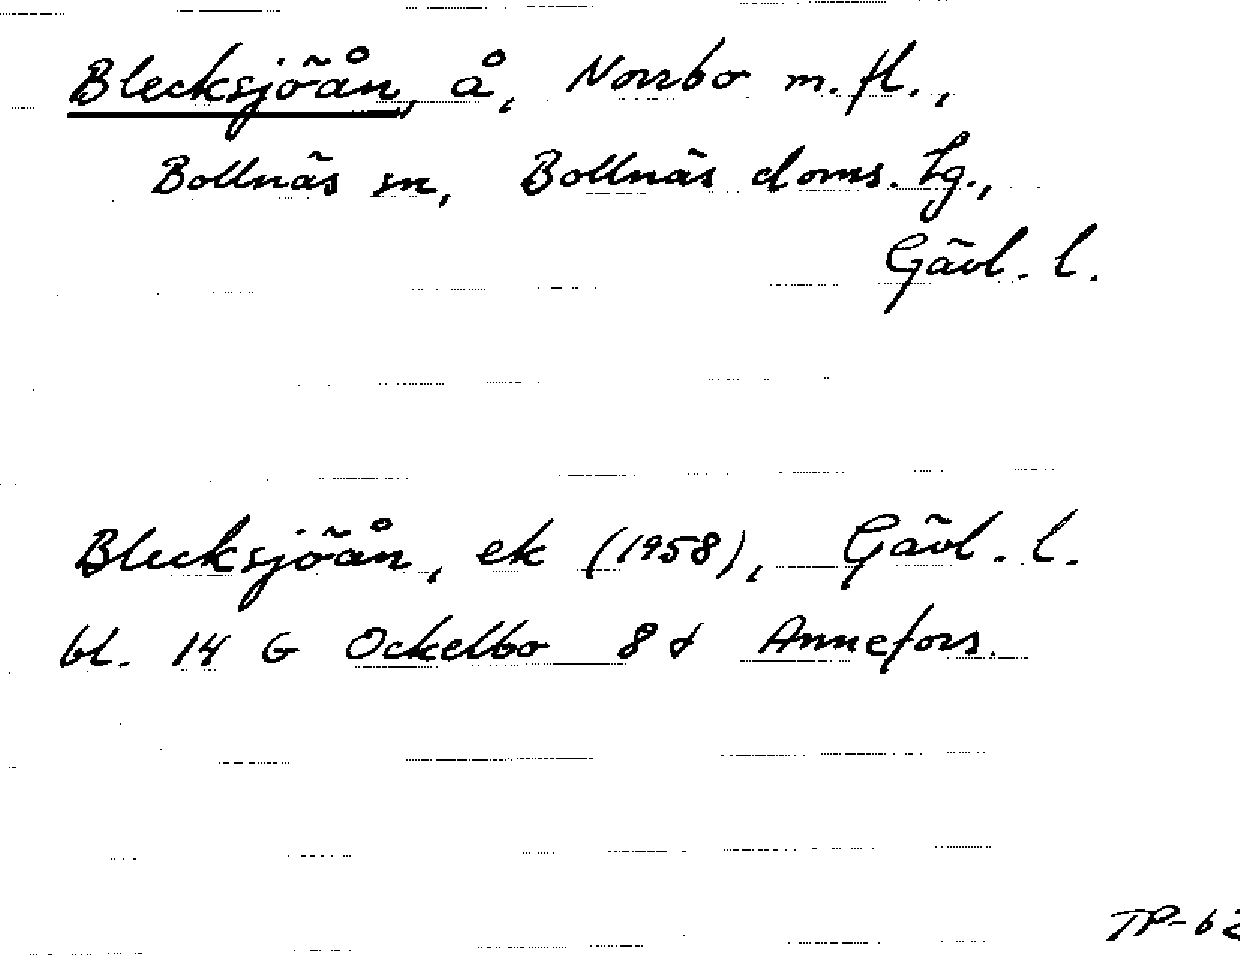 Blecksjöån, å, Norrbo m.fl.,
Bollnäs sn, Bollnäs doms. tg.,
Gävl. l.
Blecksjöån, ek (1958), Gävl. l.
bl. 14 G Ockelbo 8 d Annefors.
TP-62